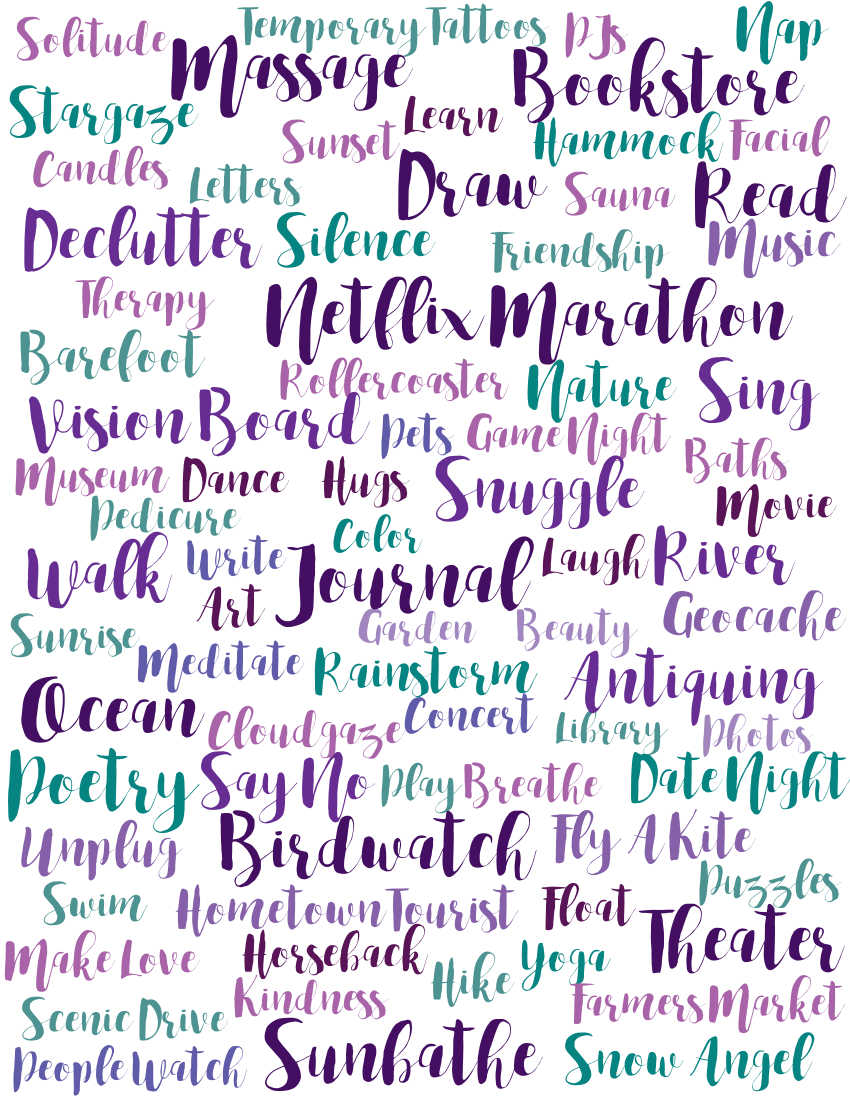 Solitude
Temporary Tattoos
PJs
Nap
Massage
Bookstore
Stargaze
Learn
Sunset
Hammock
Facial
Candles
Letters
Draw
Sauna
Read
Declutter
Silence
Friendship
Music
Therapy
Netflix Marathon
Barefoot
Rollercoaster
Nature
Sing
Vision Board
Pets
Game Night
Baths
Museum
Dance
Hugs
Snuggle
Movie
Pedicure
Color
Walk
Write
Journal
Laugh
River
Art
Garden
Beauty
Geocache
Sunrise
Meditate
Rainstorm
Antiquing
Ocean
Cloudgaze
Concert
Library
Photos
Poetry
Say No
Play
Breathe
Date Night
Unplug
Birdwatch
Fly A Kite
Puzzles
Swim
Hometown Tourist
Float
Theater
Make Love
Horseback
Hike
Yoga
Kindness
Farmers Market
Scenic Drive
People Watch
Sunbathe
Snow Angel